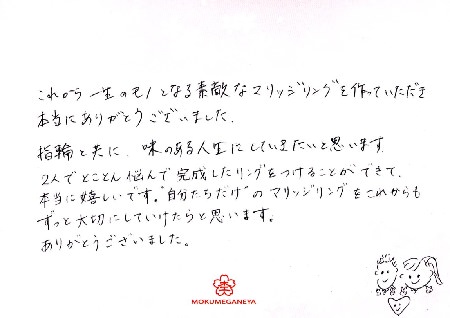 これから一生のモノとなる素敵なマリッジリングを作っていただき
本当にありがとうございました.
指輪と共に、味のある人生にしていきたいと思います
2人でとことん悩んで完成したリングをつけることができて、
本当に嬉しいです。"自分たちだけ"のマリッジリングをこれからも
ずっと大切にしていけたらと思います。
ありがとうございました。
MOKUMEGANEYA